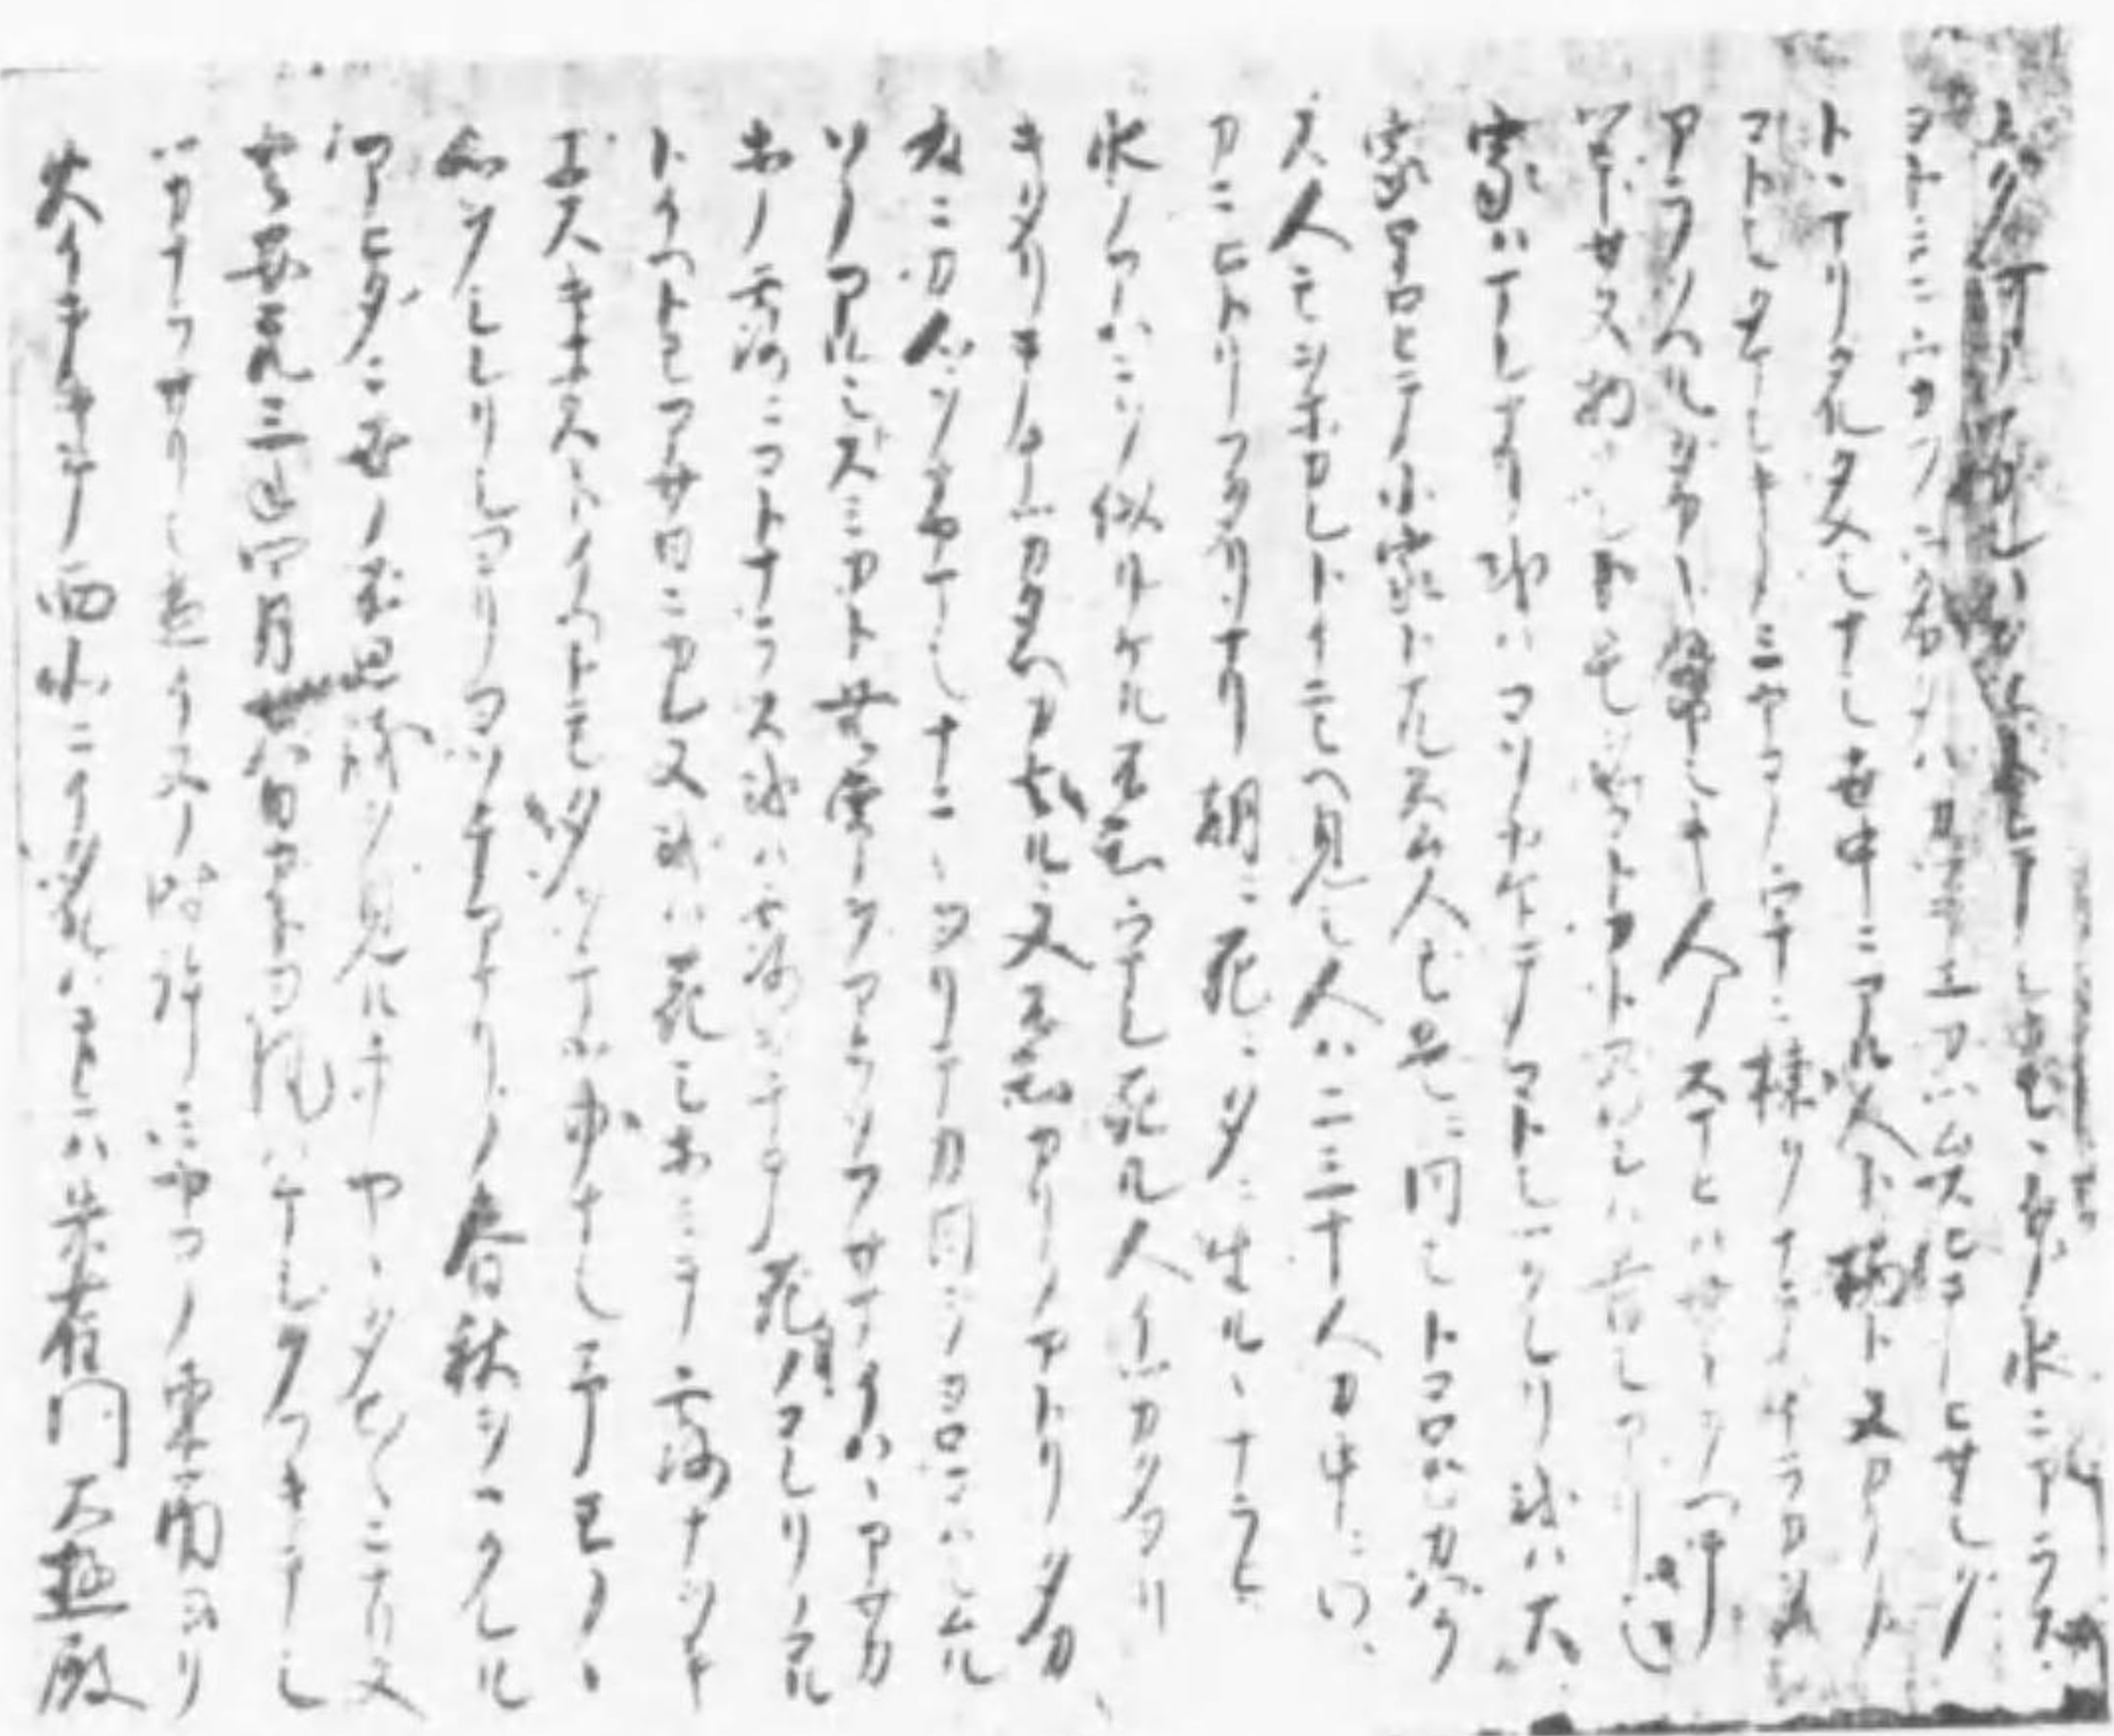 ユク河ノナカレハタエスシテシカモヽトノ水ニアラス
ヨトミニウカフウタカタハカツキエカツムスヒテヒサシク
トヽマリタルタメシナシ世中ニアル人ト栖ト又カクノコ
トシタマシキノミヤコノウチニ棟ヲナラヘイラカヲ
アラソヘルタカキイヤシキ人ノスマヒハ世々ヲヘテ
ツキセヌ物ナレトモ是ヲマコトカト尋レハ昔シアリシ
家ハマレナリ或ハコソヤケテコトシツクレリ或ハ大
家ホロヒテ小家トナルスム人モ是ニ同シトコロモカハラ
ス人モヲホカレトイニシヘ見シ人ハ二三十人カ中ニワツ
カニヒトリフタリナリ朝ニ死ニ夕ニ生ルヽナラヒ
水ノアハニソ似リケル不知ウマレ死ル人イツカタヨリ
キタリテイツカタヘカ去ル又不知カリノヤトリタカ
為ニカ心ヲナヤマシナニヽヨリテカ目ヲヨロコハシムル
ソノアルシトスミカト無常ヲアラソフサマイハヽアサカ
ホノ露ニコトナラス或ハ露ヲチテ花ノコレリノコル
トイヘトモアサ日ニカレヌ或ハ花シホミテ露ナヲキ
エスキエストイヘトモ夕ヲマツ事ナシ予モノヽ
心ヲシレリシヨリヨソチアマリノ春秋ヲヽクレル
アヒタニ世ノ不思議ヲ見ル事ヤヽタヒ〱ニナリヌ
去安元三年四月廿八日カトヨ風ハケシクフキテシ
ツカナラサリシ夜イヌノ時許ミヤコノ東南ヨリ
火イテキテ西北ニイタルハテニハ朱雀門大極殿